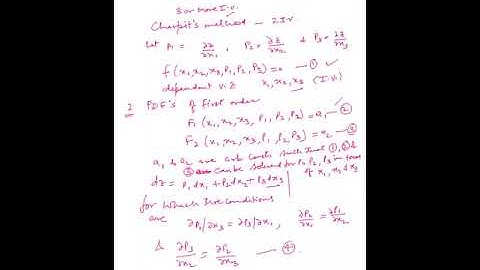 3 or more I.V.
Charpit's method — 2 I.V
Let P₁ = ∂z/∂x₁ , P₂ = ∂z/∂x₂ & P₃ = ∂z/∂x₃
f(x₁, x₂, x₃, P₁, P₂, P₃) = 0 — ①
dependent v. z x₁, x₂, x₃ (I.V.)
2 PDE's of first order
F₁(x₁, x₂, x₃, P₁, P₂, P₃) = a₁ — ②
F₂(x₁, x₂, x₃, P₁, P₂, P₃) = a₂ — ③
a₁ & a₂ are arb consts such that ①, ② &
③ can be solved for P₁ P₂ P₃ in terms
dz = P₁dx₁ + P₂dx₂ + P₃dx₃ of x₁, x₂ & x₃
for which the conditions
are ∂P₂/∂x₃ = ∂P₃/∂x₁ , ∂P₂/∂x₁ = ∂P₁/∂x₂
& ∂P₃/∂x₂ = ∂P₂/∂x₃ — ④